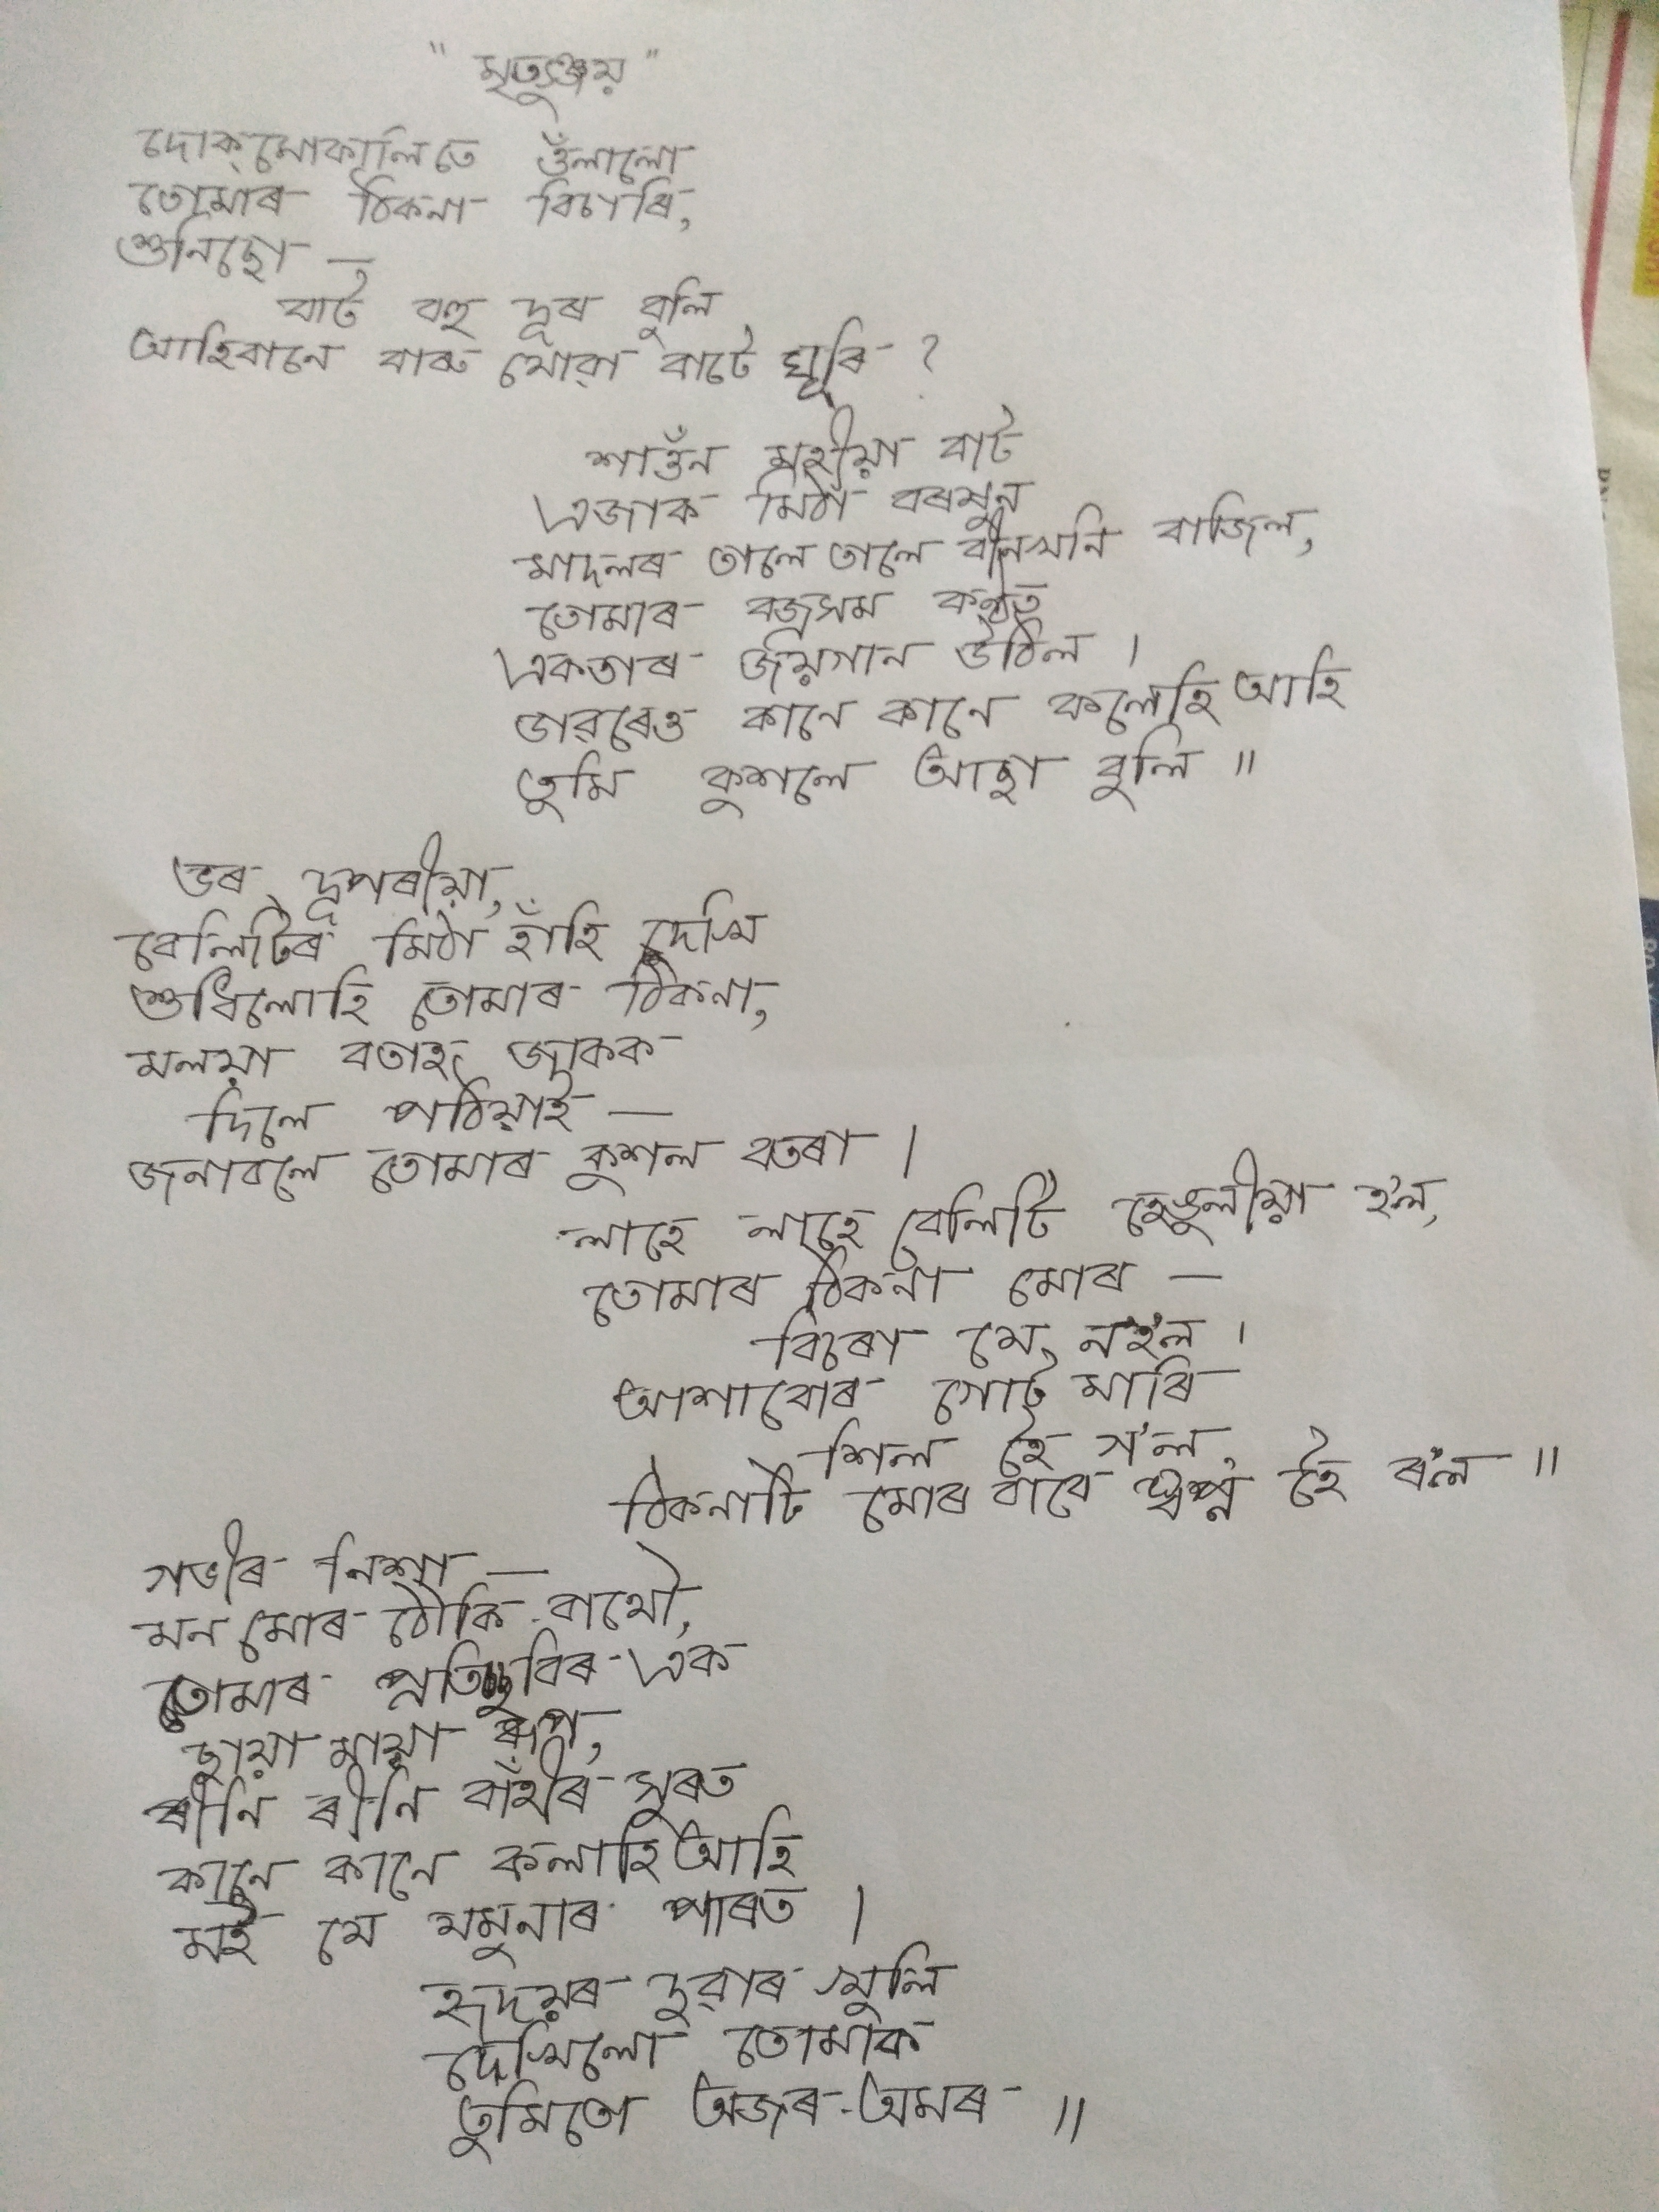 " মৃত্যুঞ্জয় "
দোক্‌মোকালিতে ওঁলালো
তোমাৰ ঠিকনা বিচাৰি,
শুনিছো —,
বাট বহু দূৰ বুলি
আহিবানে বাৰু যোৱা বাটে ঘূৰি ?
শাওঁন মহীয়া বাট
এজাক মিঠা বৰষুন
মাদলৰ তালে তালে বীনখনি বাজিল,
তোমাৰ বজ্ৰসম কণ্ঠত
একতাৰ জয়গান উঠিল ।
ডাৱৰেও কানে কানে কলেহি আহি
তুমি কুশলে আছা বুলি ॥
ভৰ দূপৰীয়া,
বেলিটিৰ মিঠা হাঁহি দেখি
শুধিলোহি তোমাৰ ঠিকনা,
মলয়া বতাহ জাকক
দিলে পঠিয়াই —
জনাবলে তোমাৰ কুশল বতৰা ।
লাহে লাহে বেলিটি হেঙুলীয়া হ'ল,
তোমাৰ ঠিকনা মোৰ —
বিচৰো যে, ন'হ'ল ।
আশাবোৰ গোট মাৰি
শিল হৈ গ'ল,
ঠিকনাটি মোৰ বাবে স্বপ্ন হৈ ৰ'ল ॥
গভীৰ নিশা —
মন মোৰ ঠৌকি-বাথৌ,
তোমাৰ প্ৰতিচ্ছবিৰ এক
ছায়া মায়া ৰূপ,
ৰীনি ৰীনি বাঁহীৰ সুৰত
কানে কানে কলাহি আহি
মই যে যমুনাৰ পাৰত ।
হৃদয়ৰ দুৱাৰ খুলি
দেখিলো তোমাক
তুমিতো অজৰ-অমৰ ॥